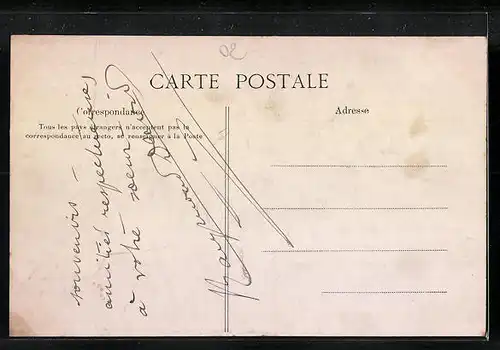 02
CARTE POSTALE
Correspondance
Tous les pays étrangers n'acceptent pas la
correspondance au recto, se renseigner à la Poste
Adresse
souvenirs -
amitiés respectueuses
à votre sœur
Raymond